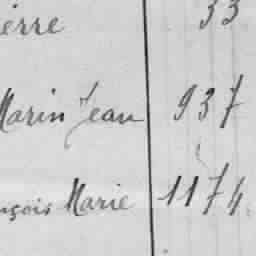 ierre 33
Marin Jean 937
nçois Marie 1174